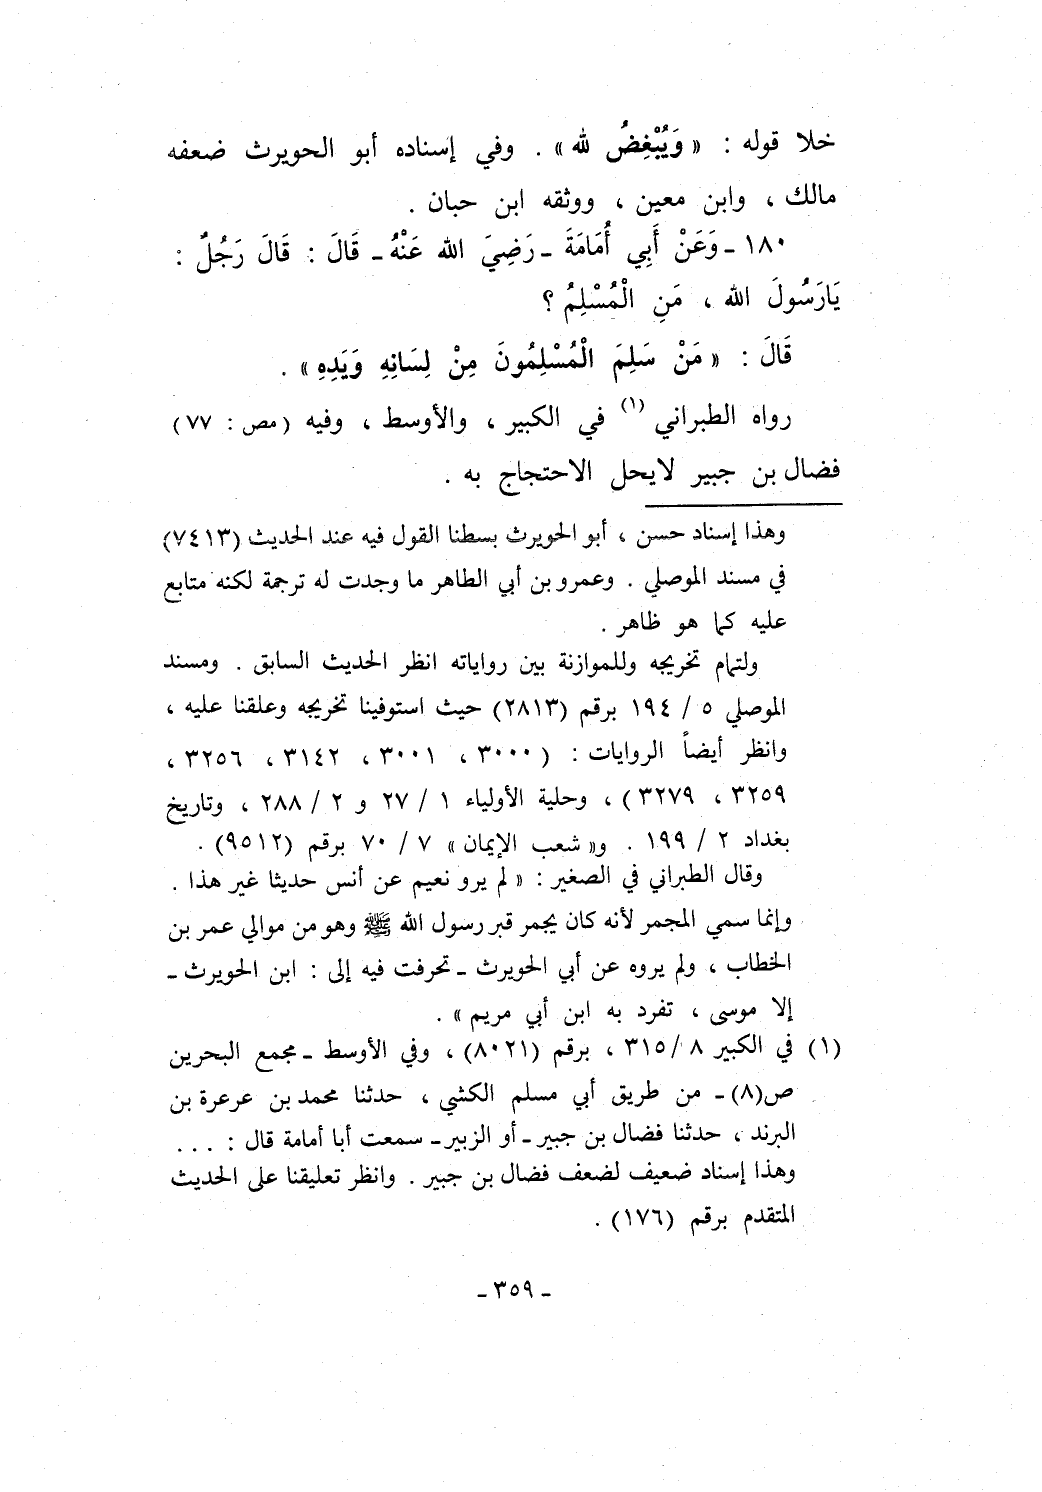 خلا قوله : « وَيُبْغِضُ لله » . وفي إسناده أبو الحويرث ضعفه
مالك ، وابن معين ، ووثقه ابن حبان .
١٨٠ ـ وَعَنْ أَبِي أُمَامَةَ ـ رَضِيَ الله عَنْهُ ـ قَالَ : قَالَ رَجُلٌ :
يَارَسُولَ الله ، مَنِ الْمُسْلِمُ ؟
قَالَ : « مَنْ سَلِمَ الْمُسْلِمُونَ مِنْ لِسَانِهِ وَيَدِهِ » .
رواه الطبراني (١) في الكبير ، والأوسط ، وفيه ( مص : ٧٧ )
فضال بن جبير لايحل الاحتجاج به .
وهذا إسناد حسن ، أبو الحويرث بسطنا القول فيه عند الحديث (٧٤١٣)
في مسند الموصلي . وعمرو بن أبي الطاهر ما وجدت له ترجمة لكنه متابع
عليه كما هو ظاهر .
ولتمام تخريجه وللموازنة بين رواياته انظر الحديث السابق . ومسند
الموصلي ٥ / ١٩٤ برقم (٢٨١٣) حيث استوفينا تخريجه وعلقنا عليه ،
وانظر أيضاً الروايات : ( ٣٠٠٠ ، ٣٠٠١ ، ٣١٤٢ ، ٣٢٥٦ ،
٣٢٥٩ ، ٣٢٧٩ ) ، وحلية الأولياء ١ / ٢٧ و ٢ / ٢٨٨ ، وتاريخ
بغداد ٢ / ١٩٩ . و« شعب الإيمان » ٧ / ٧٠ برقم (٩٥١٢) .
وقال الطبراني في الصغير : « لم يرو نعيم عن أنس حديثا غير هذا .
وإنما سمي المجمر لأنه كان يجمر قبر رسول الله ﷺ وهو من موالي عمر بن
الخطاب ، ولم يروه عن أبي الحويرث ـ تحرفت فيه إلى : ابن الحويرث ـ
إلا موسى ، تفرد به ابن أبي مريم » .
(١) في الكبير ٨ / ٣١٥ ، برقم (٨٠٢١) ، وفي الأوسط ـ مجمع البحرين
ص(٨) ـ من طريق أبي مسلم الكشي ، حدثنا محمد بن عرعرة بن
البرند ، حدثنا فضال بن جبير ـ أو الزبير ـ سمعت أبا أمامة قال : ...
وهذا إسناد ضعيف لضعف فضال بن جبير . وانظر تعليقنا على الحديث
المتقدم برقم (١٧٦) .
ـ ٣٥٩ ـ